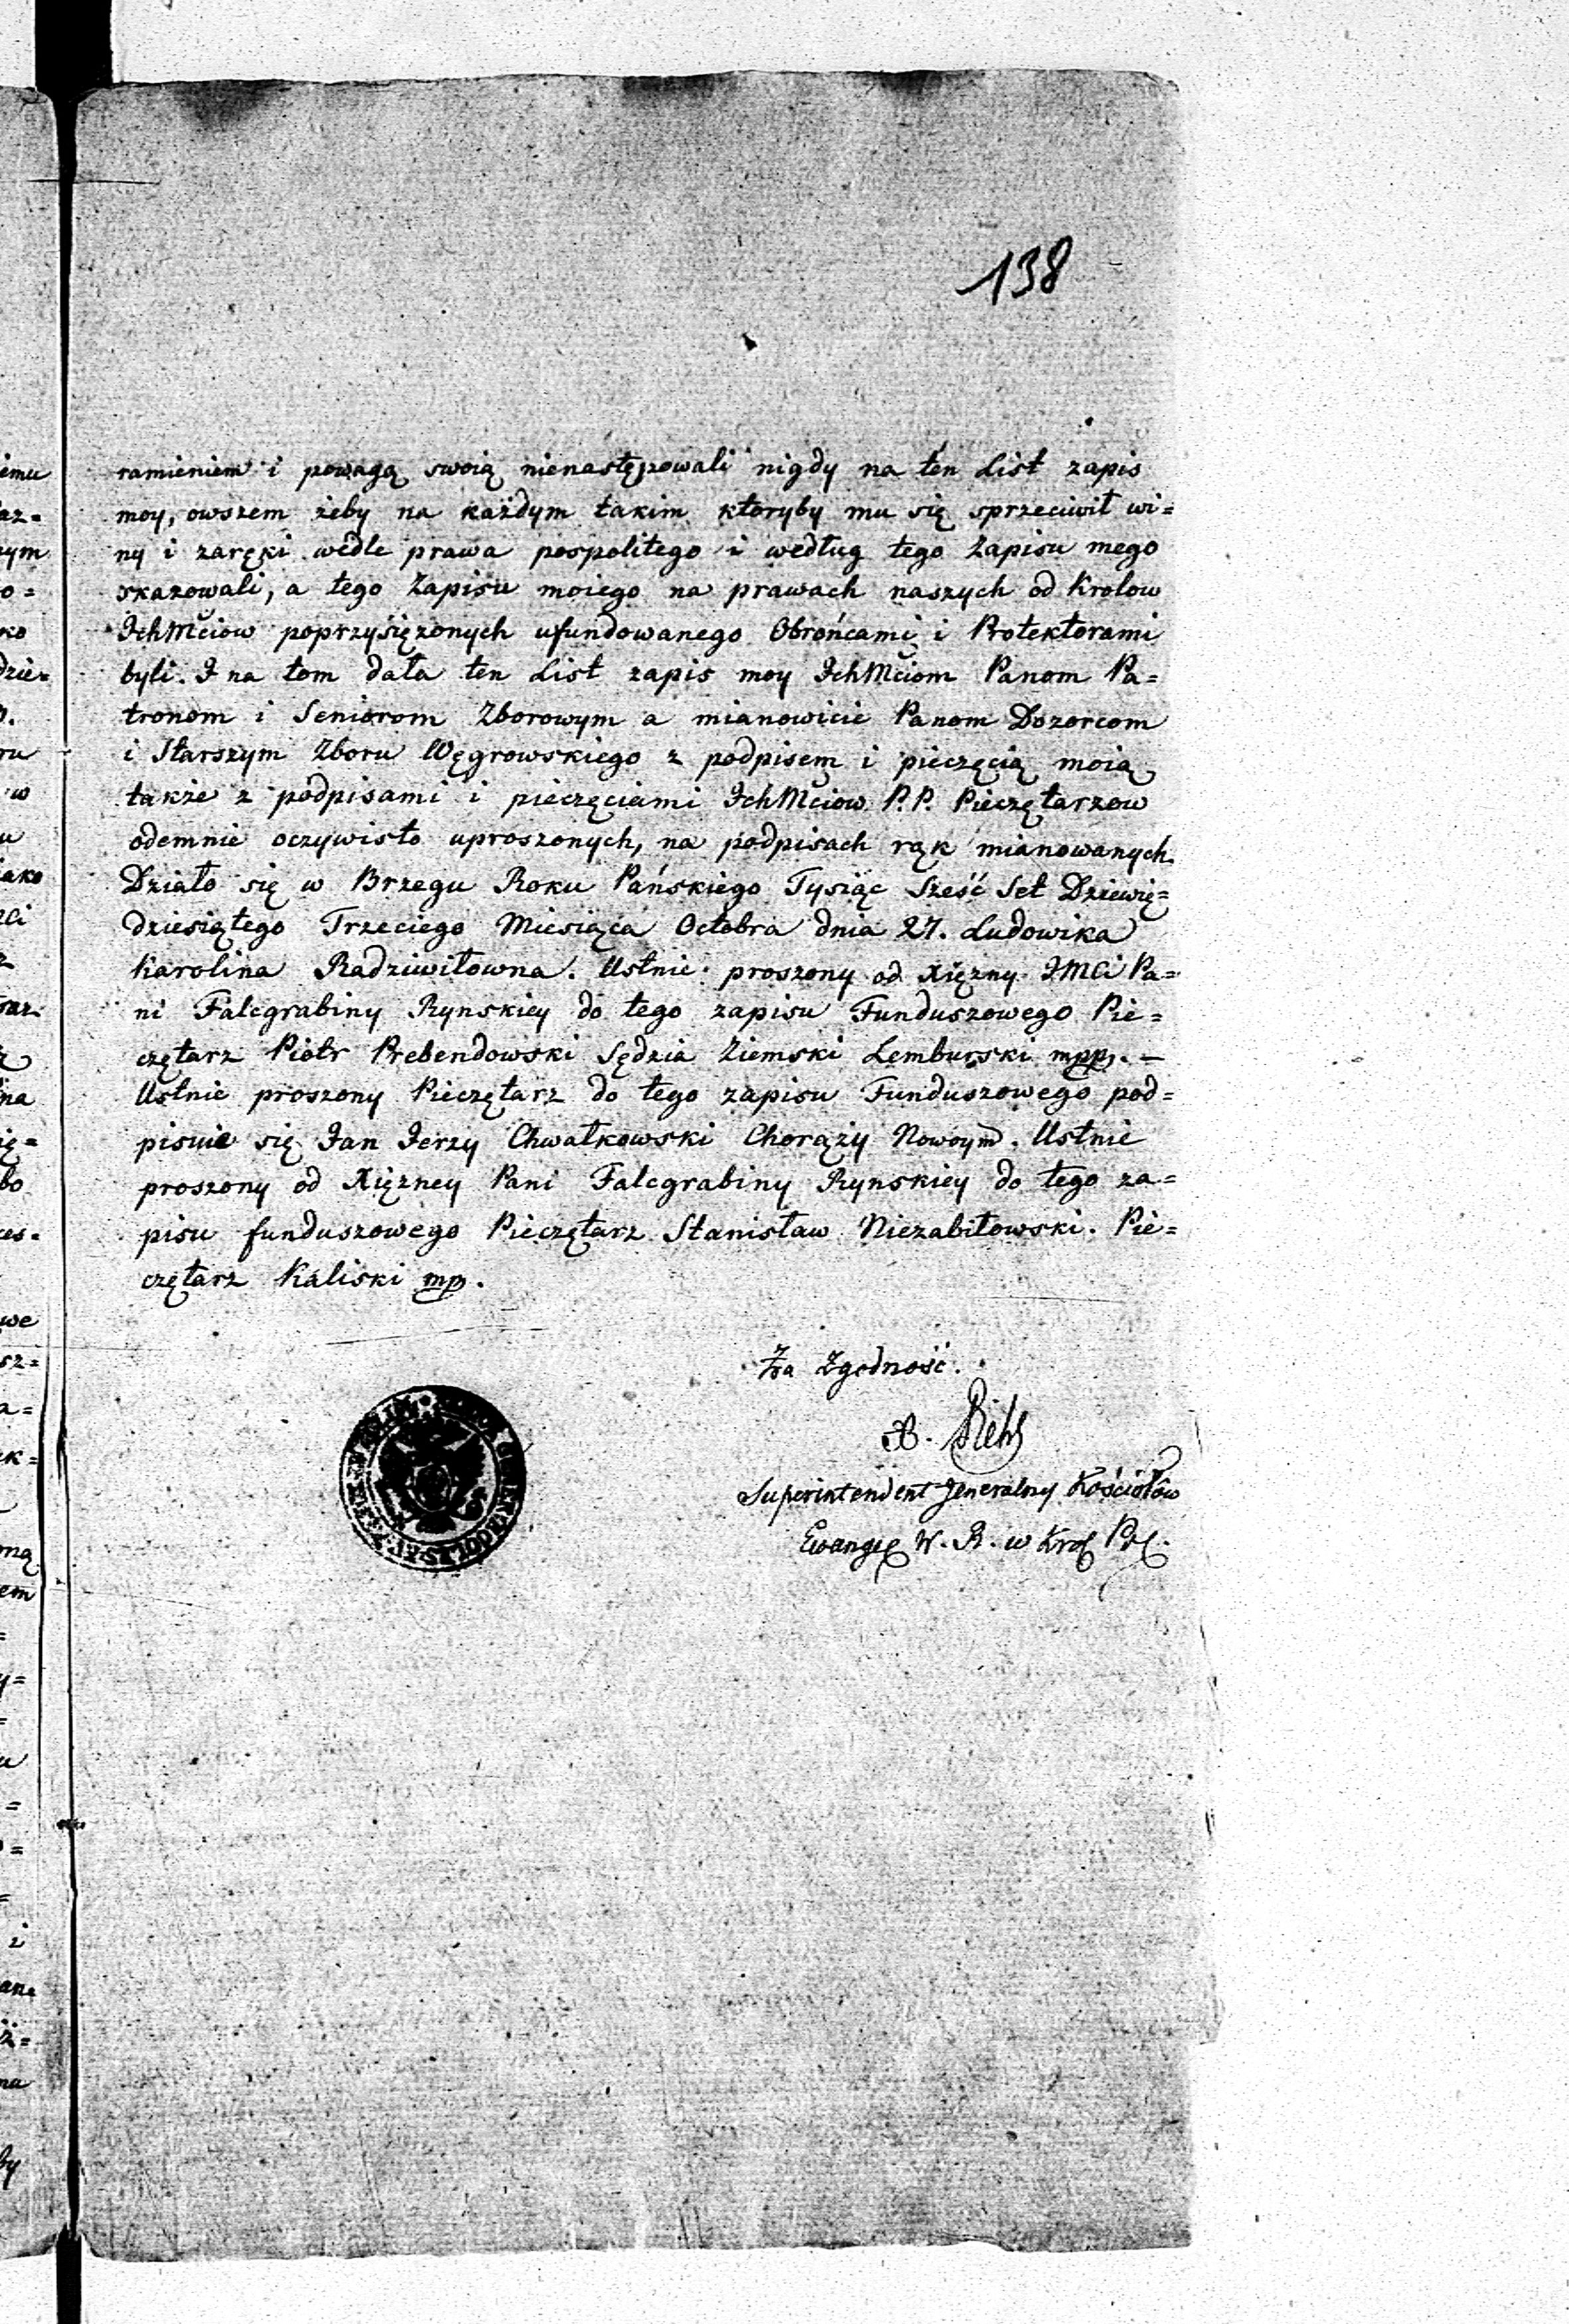 138
ramieniem i powagą swoią nienastępowali nigdy na ten List zapis
moy, owszem żeby na każdym takim ktoryby mu się sprzeciwił wi=
ny i zaręki wedle prawa pospolitego i według tego Zapisu mego
skazowali, a tego Zapisu moiego na prawach naszych od Krolow
IchMciow poprzysiężonych ufundowanego Obrońcami i Protektorami
byli. I na tom dała ten List zapis moy IchMciom Panom Pa=
tronom i Seniorom Zborowym a mianowicie Panom Dozorcom
i Starszym Zboru Węgrowskiego z podpisem i pieczęcią moią
także z podpisami i pieczęciami IchMciow P.P. Pieczętarzow
odemnie oczywisto uproszonych, na podpisach rąk mianowanych.
Działo się w Brzegu Roku Pańskiego Tysiąc Sześć Set Dziewię=
dziesiątego Trzeciego Miesiąca Octobra dnia 27. Ludowika
Karolina Radziwiłowna. Ustnie proszony od Xiężny IMCi Pa=
ni Falcgrabiny Rynskiey do tego zapisu Funduszowego Pie=
czętarz Piotr Prebendowski Sędzia Ziemski Lemburski mpp. —
Ustnie proszony Pieczętarz do tego zapisu Funduszowego pod=
pisuie się Jan Jerzy Chwałkowski Chorąży Nowoym. Ustnie
proszony od Xiężney Pani Falcgrabiny Rynskiey do tego za=
pisu funduszowego Pieczętarz Stanisław Niezabitowski. Pie=
czętarz Kaliski mp.
Za Zgodność.
Superintendent Jeneralny Kościołów
Ewangel W. R. w Krol Pol.